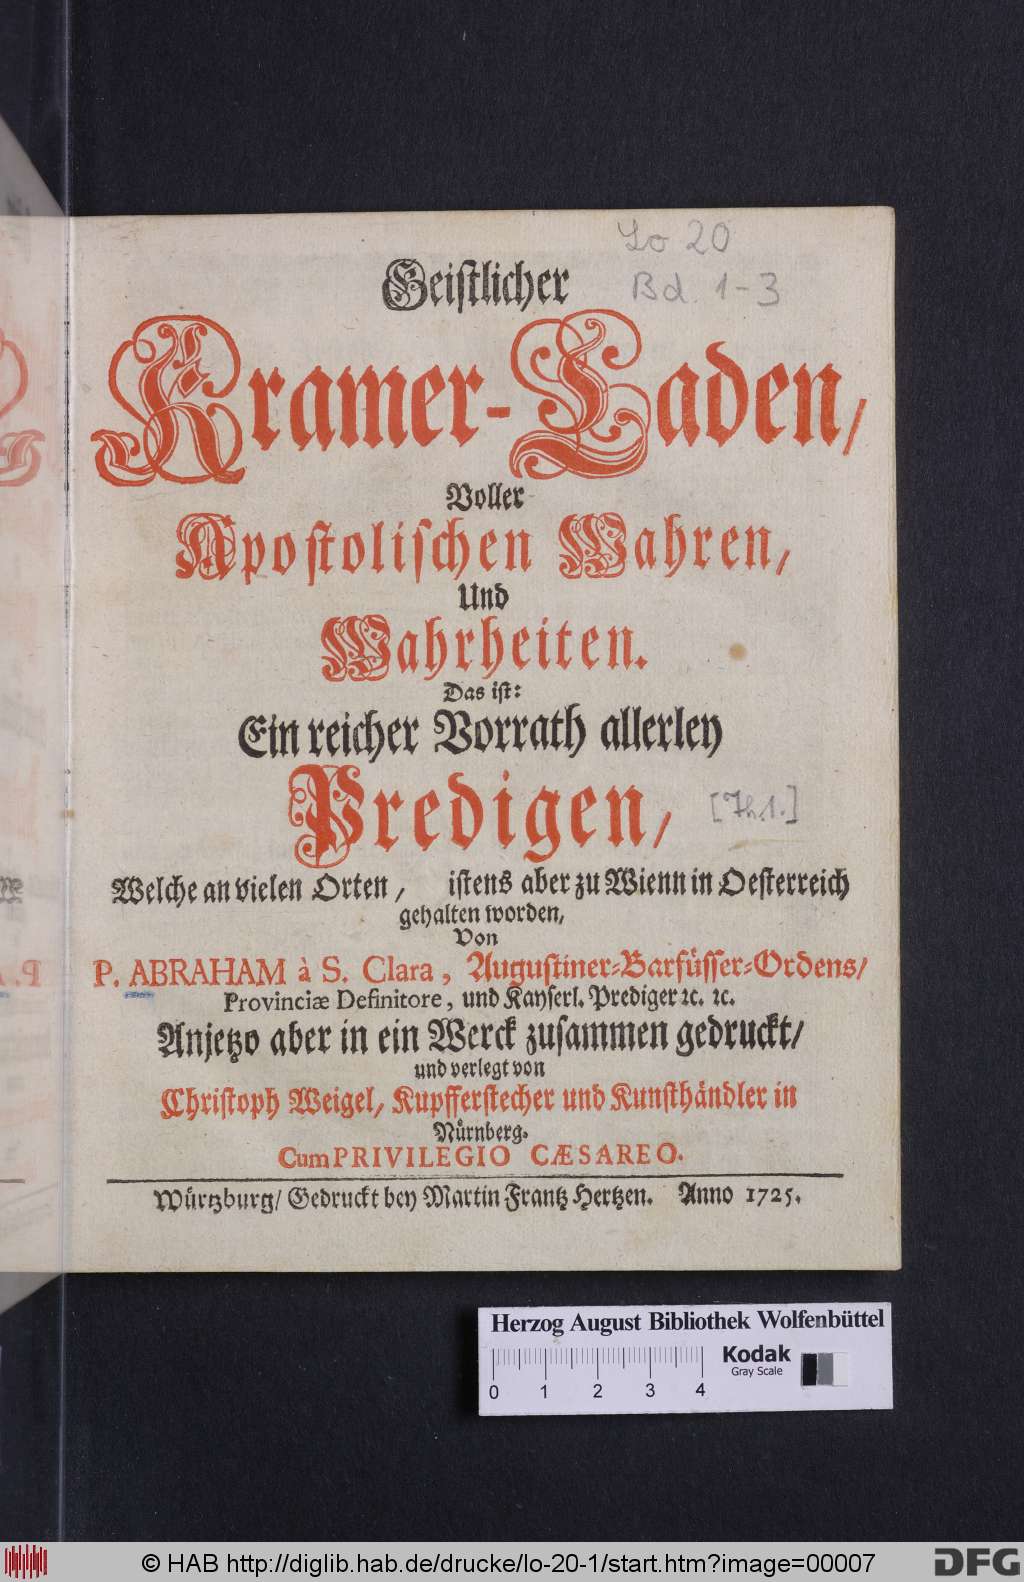 Lo 20
Bd. 1-3
Geistlicher
Kramer-Laden,
Voller
Apostolischen Wahren,
Und
Wahrheiten.
Das ist:
Ein reicher Vorrath allerley
Predigen,
[Th. 1.]
Welche an vielen Orten, istens aber zu Wienn in Oesterreich
gehalten worden,
Von
P. ABRAHAM à S. Clara, Augustiner-Barfüsser-Ordens/
Provinciæ Definitore, und Kayserl. Prediger ꝛc. ꝛc.
Anjetzo aber in ein Werck zusammen gedruckt/
und verlegt von
Christoph Weigel, Kupfferstecher und Kunsthändler in
Nürnberg.
Cum PRIVILEGIO CÆSAREO.
Würtzburg/ Gedruckt bey Martin Frantz Hertzen. Anno 1725.
Herzog August Bibliothek Wolfenbüttel
0 1 2 3 4
Kodak
Gray Scale
© HAB http://diglib.hab.de/drucke/lo-20-1/start.htm?image=00007
DFG